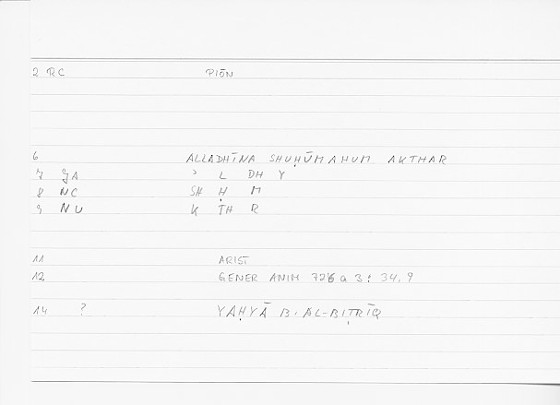 2 RC PĪŌN
6 ALLADHĪNA SHUḤŪMAHUM AKTHAR
7 JA ʾ L DHY
8 NC SH Ḥ M
9 NU K TH R
11 ARIST
12 GENER ANIM 726 a 3 : 34, 9
14 ? YAḤYĀ B. AL-BIṬRĪQ